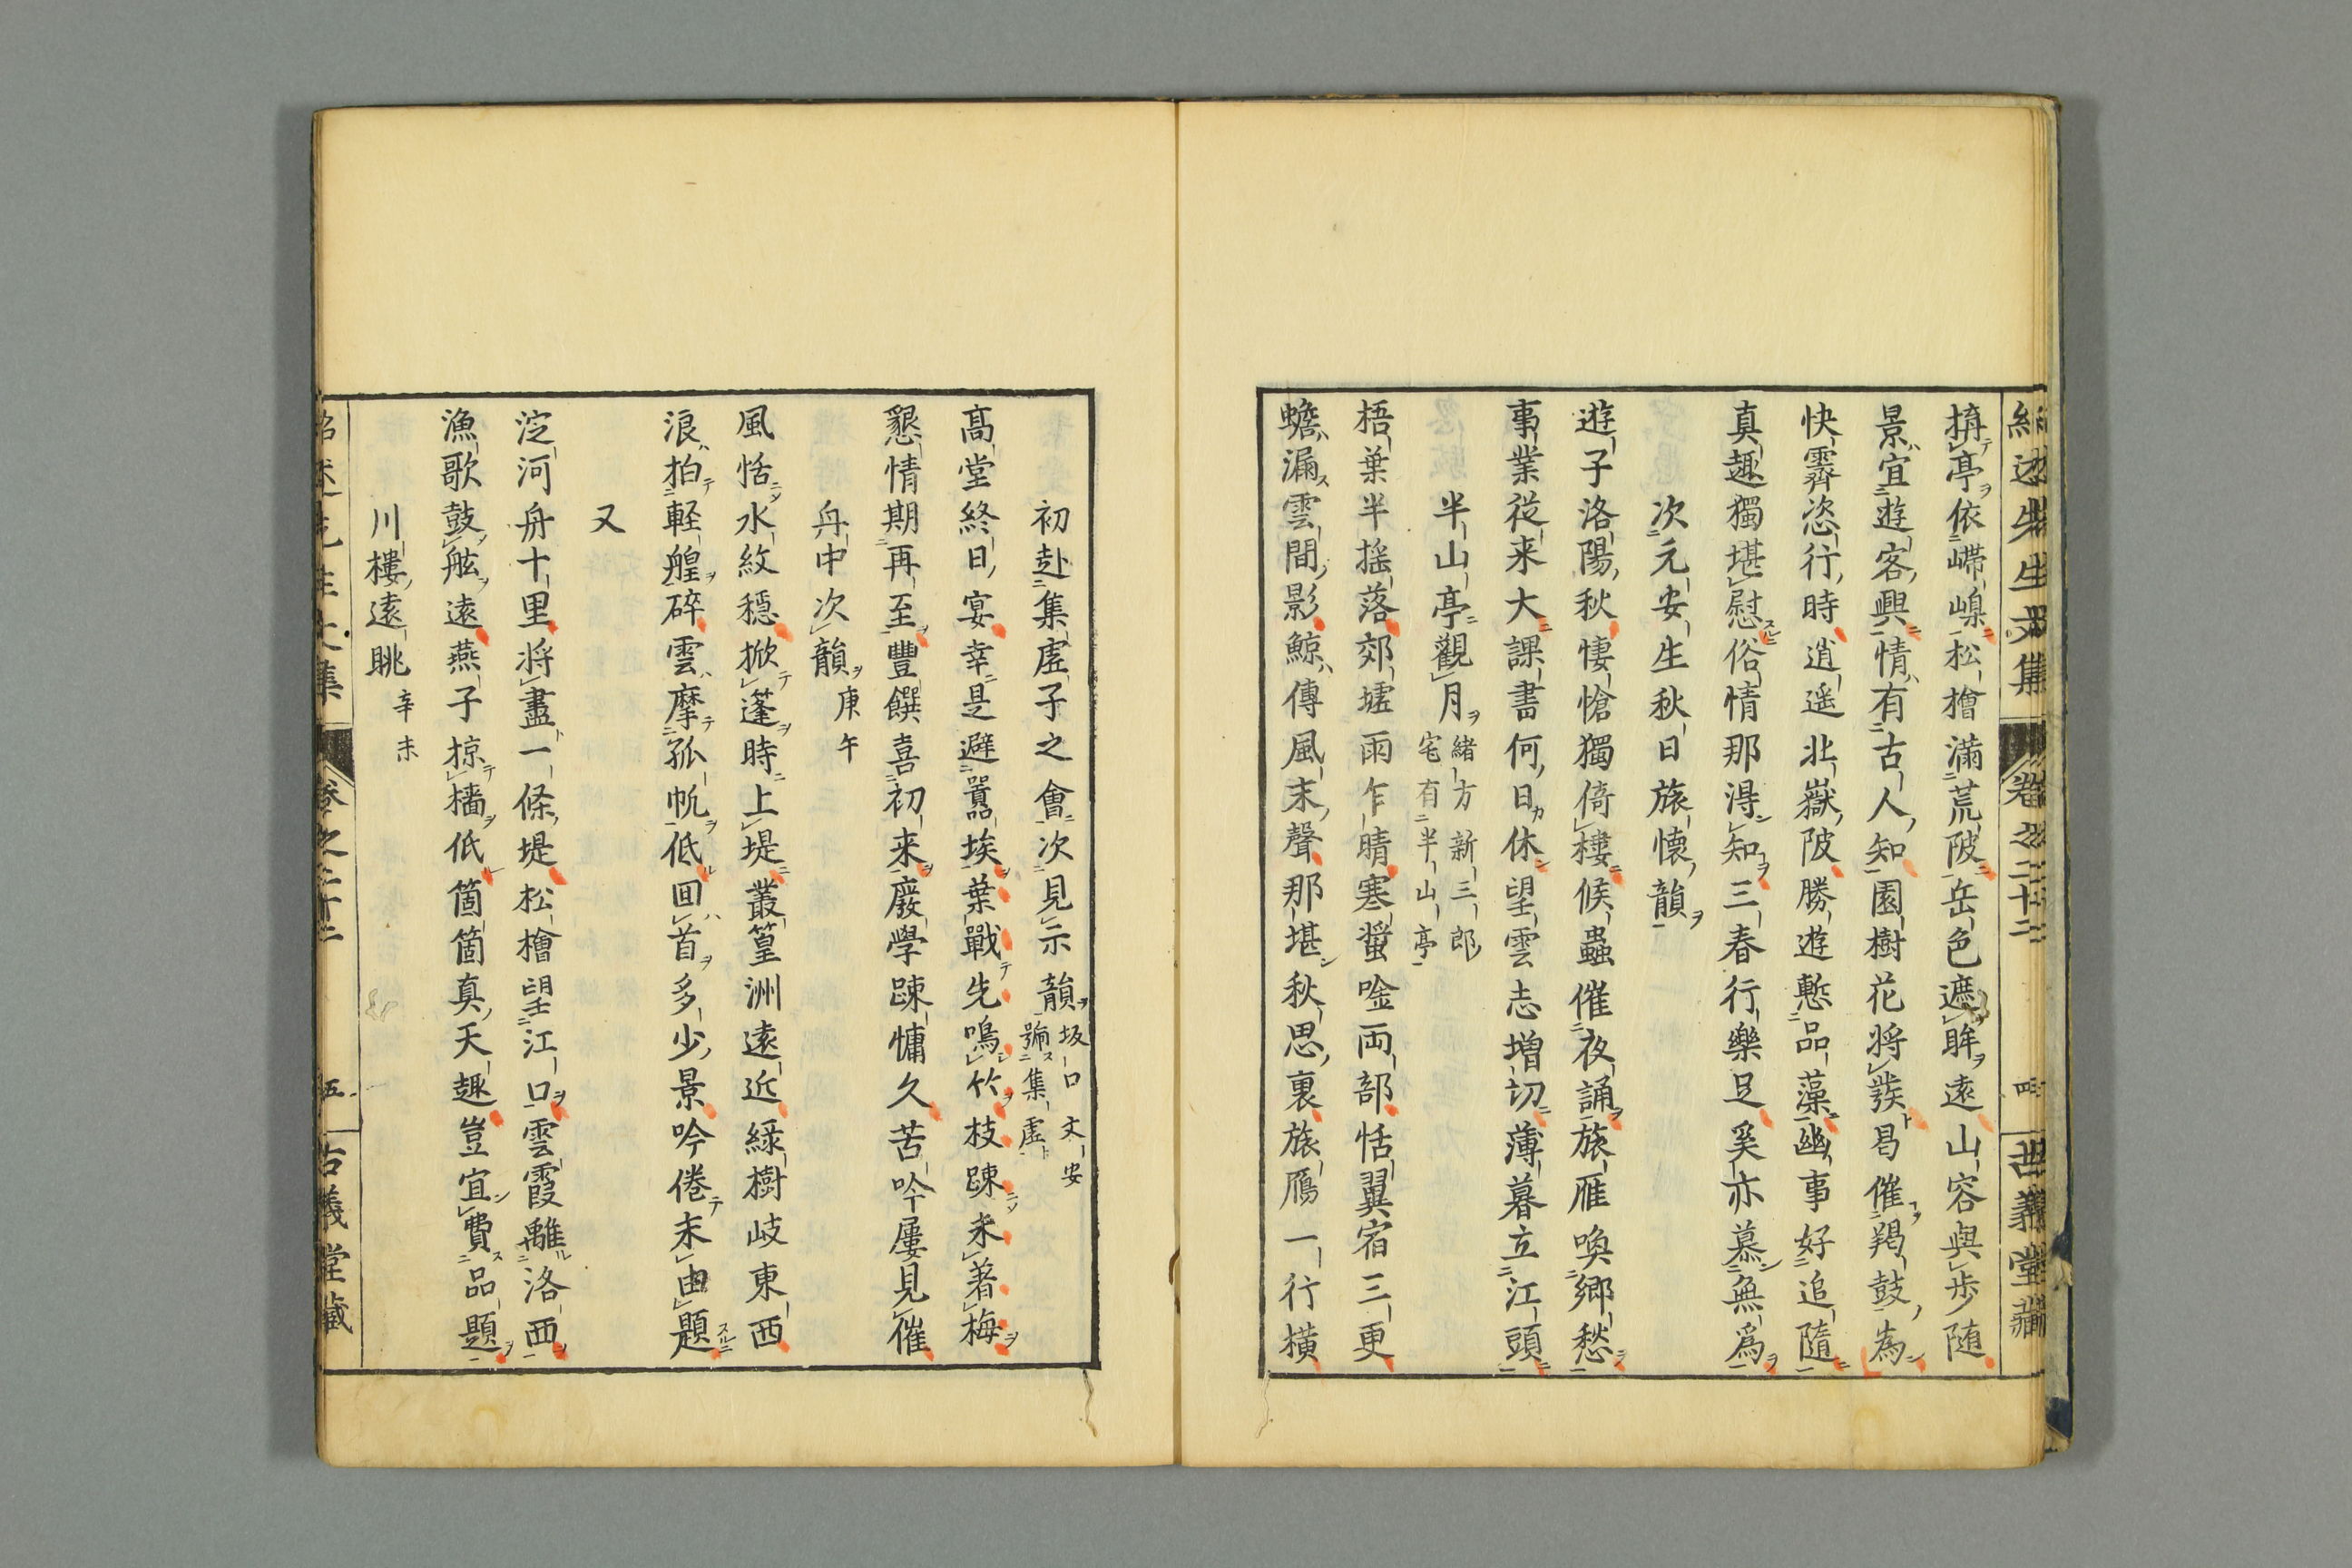 紹述先生文集 卷之二十二 四 古義堂藏
構亭依嵽嵲松檜滿荒陂岳色遮眸遠山容與歩随
景宜遊客興情有古人知園樹花将發曷催羯鼓為
快霽恣行時逍遥北嶽陂勝遊慙品藻幽事好追隨
真趣獨堪慰俗情那淂知三春行樂足奚亦慕無爲
次元安生秋日旅懐韻
遊子洛陽秋悽愴獨倚樓候蟲催夜誦旅雁喚鄉愁
事業從来大課書何日休望雲志増切薄暮立江頭
半山亭觀月 緒方新三郎宅有半山亭
梧葉半摇落郊墟雨乍晴寒螿唫両部恬翼宿三更
蟾漏雲間影鯨傳風末聲那堪秋思裏旅鴈一行横
初赴集虚子之會次見示韻 坂口文安號集虚
髙堂終日宴幸是避囂埃葉戰先鳴竹枝踈未著梅
懇情期再至豐饌喜初来廢學踈慵久苦吟屢見催
舟中次韻 庚午
風恬水紋穩掀蓬時上堤叢篁洲遠近緑樹岐東西
浪拍軽艎碎雲摩孤帆低回首多少景吟倦未由題
又
淀河舟十里将盡一條堤松檜望江口雲霞離洛西
漁歌鼓舷遠燕子掠檣低箇箇真天趣豈宜費品題
川樓遠眺 辛未
紹述先生文集 卷之二十二 五 古義堂藏